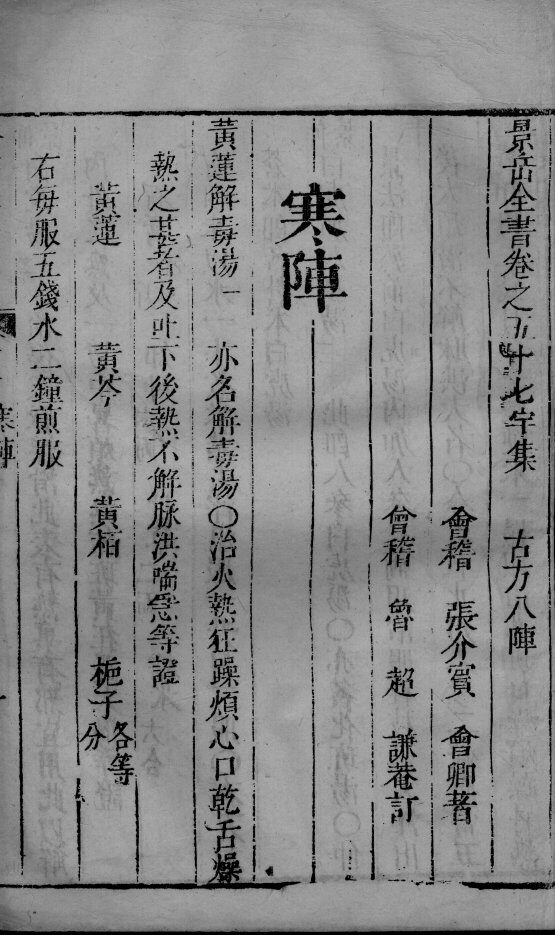 景岳全書卷之五十七宇集　古方八陣
會稽　張介賓　會卿著
會稽　魯超　謙菴訂
寒陣
黃蓮解毒湯一　亦名解毒湯〇治火熱狂躁煩心口乾舌燥
熱之甚者及吐下後熱不解脉洪喘急等證
黃蓮　黃芩　黃栢　梔子各等分
右每服五錢水二鐘煎服
寒陣